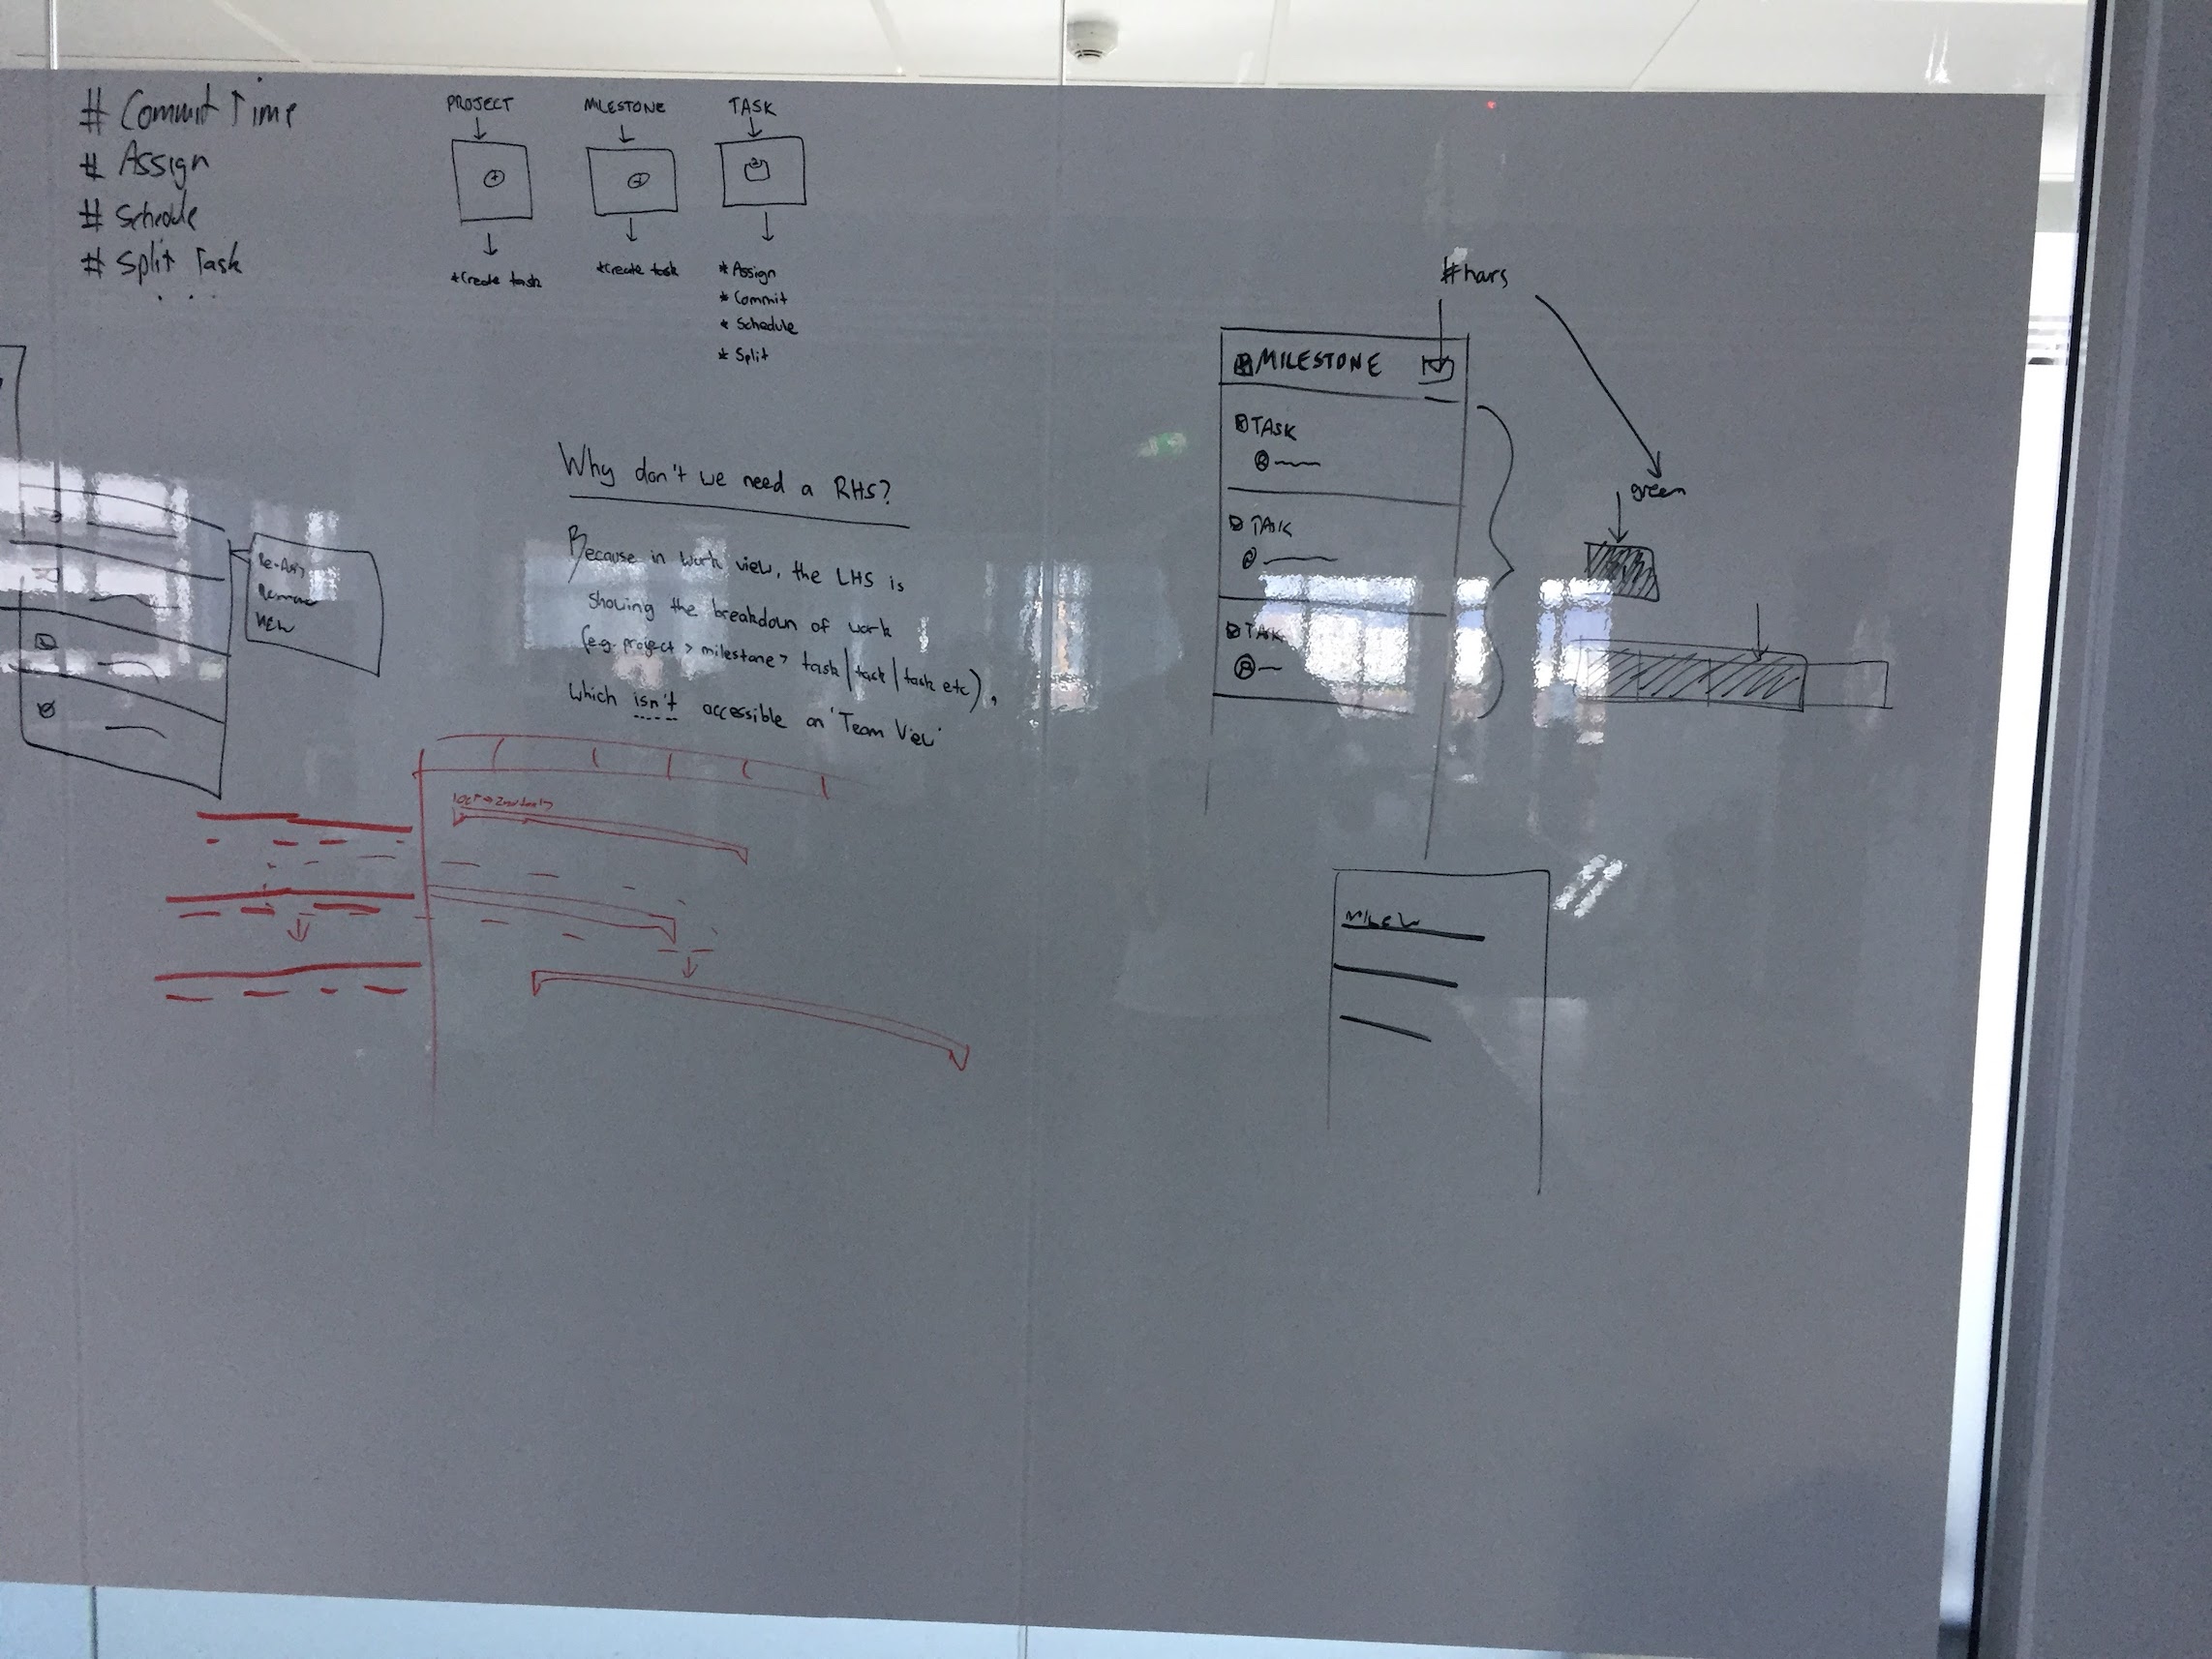 # Commit Time
# Assign
# Schedule
# Split Task
. . .
PROJECT
*Create task
MILESTONE
*Create task
TASK
* Assign
* Commit
* Schedule
* Split
Why don't we need a RHS?
Because in work view, the LHS is
showing the breakdown of work
(e.g. project > milestone > task | task | task etc),
which isn't accessible on 'Team View'
Remove
#hours
MILESTONE
TASK
TASK
TASK
green